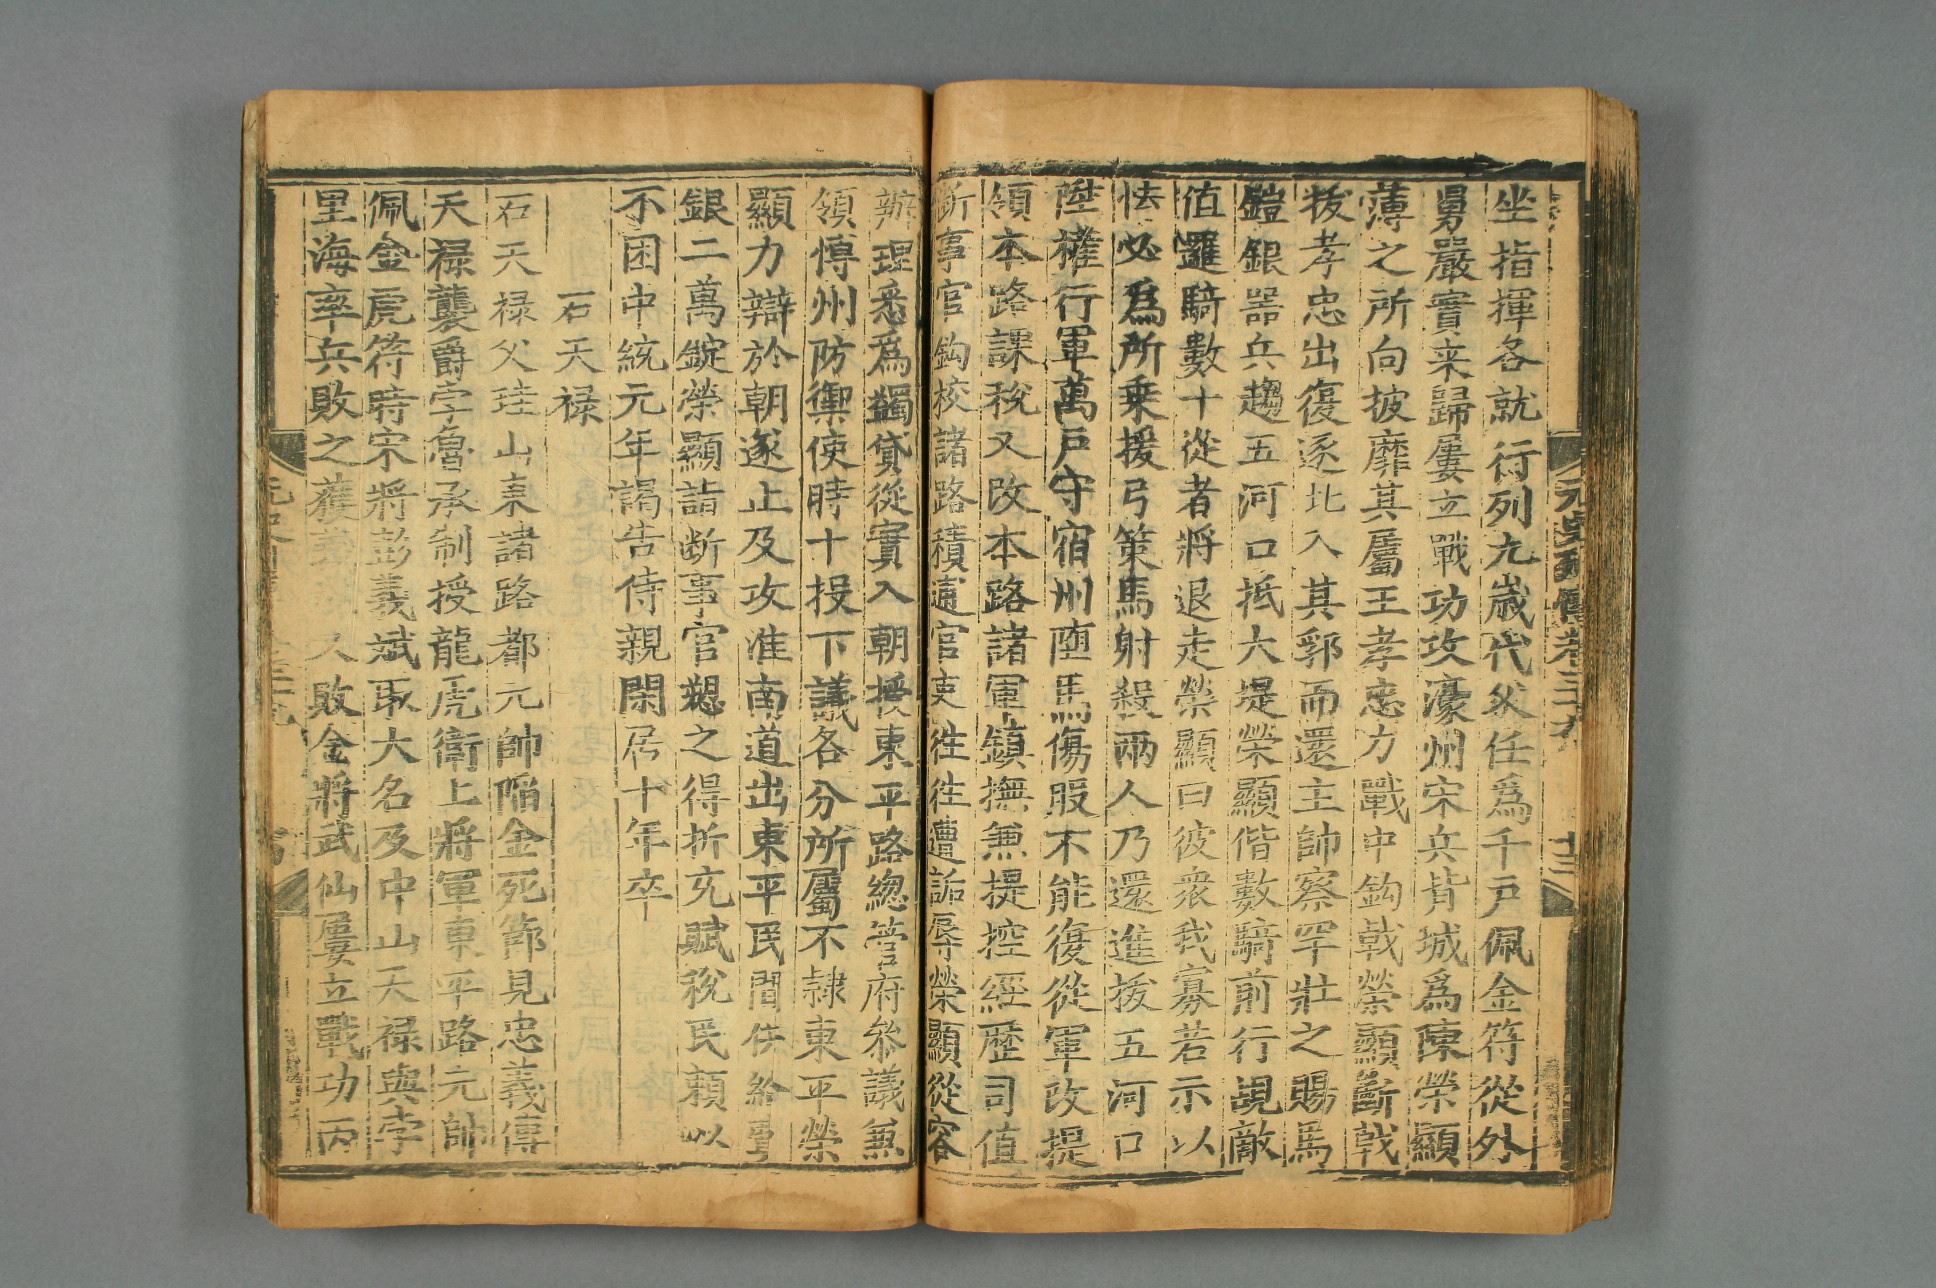 元史列傳卷三十九
十三
坐指揮各就行列九歲代父任爲千戶佩金符從外
舅嚴實來歸屢立戰功攻濠州宋兵背城爲陳榮顯
薄之所向披靡其屬王孝忠方戰中鈎戟榮顯斷戟
拔孝忠出復逐北入其郛而還主帥察罕壯之賜馬
鎧銀器兵趨五河口抵大堤榮顯偕數騎前行覘敵
值邏騎數十從者將退走榮顯曰彼衆我寡若示以
怯必爲所乗援弓策馬射殺兩人乃還進拔五河口
陞權行軍萬戶守宿州墮馬傷股不能復從軍改提
領本路課稅又改本路諸軍鎮撫兼提控經歷司值
斷事官鈎校諸路積逋官吏往往遭詬辱榮顯從容
辦理悉爲蠲貸從實入朝授東平路總管府參議兼
領博州防禦使時十投下議各分所屬不隸東平榮
顯力辯於朝遂止及攻淮南道出東平民間供給費
銀二萬錠榮顯詣斷事官愬之得折充賦稅民頼以
不困中統元年謁告侍親閑居十年卒
石天祿
石天禄父珪山東諸路都元帥陥金死節見忠義傳
天禄襲爵孛魯承制授龍虎衛上將軍東平路元帥
佩金虎符時宋將彭義斌取大名及中山天禄與孛
里海率兵敗之獲義又敗金將武仙屢立戰功丙